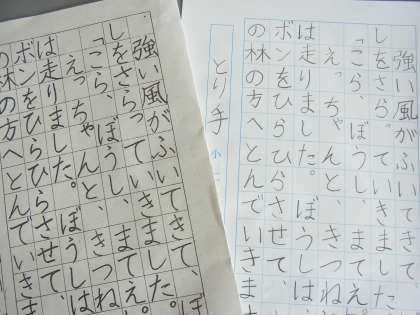 強い風がふいてきて、
しをさらっていきました
「こら、ぼうし、まてえ
えっちゃんと、きつね
は走りました。ぼうしは、
ボンをひらひらさせて、
の林の方へとんでいきま
とり手
小
強い風がふいてきて、ぼ
しをさらっていきました。
「こら、ぼうし、まてえ。
えっちゃんと、きつね
は走りました。ぼうしは
ボンをひらひらさせて、
の林の方へとんでいきま